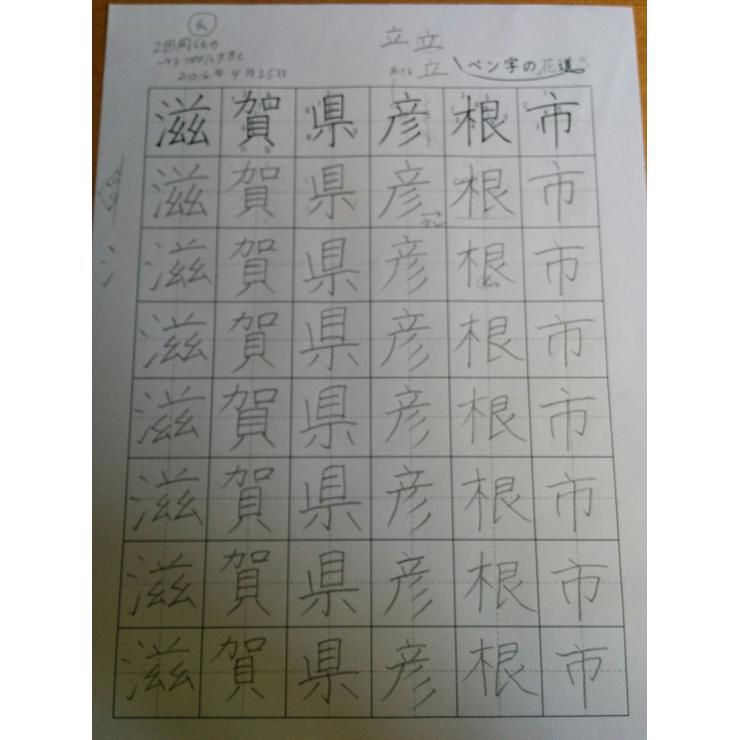 立 立
立
2016年4月25日
ペン字の花道
滋賀県彦根市
滋賀県彦根市
滋賀県彦根市
滋賀県彦根市
滋賀県彦根市
滋賀県彦根市
滋賀県彦根市
滋賀県彦根市